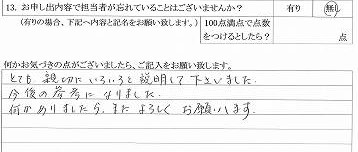 13. お申し出内容で担当者が忘れていることはございませんか？ 有り 無し
（有りの場合、下記へ内容と記名をお願い致します。） 100点満点で点数をつけるとしたら？ 点
何かお気づきの点がございましたら、ご記入をお願い致します。
とても 親切にいろいろと説明して下さいました。
今後の参考になりました。
何かありましたら、また よろしく お願いします。